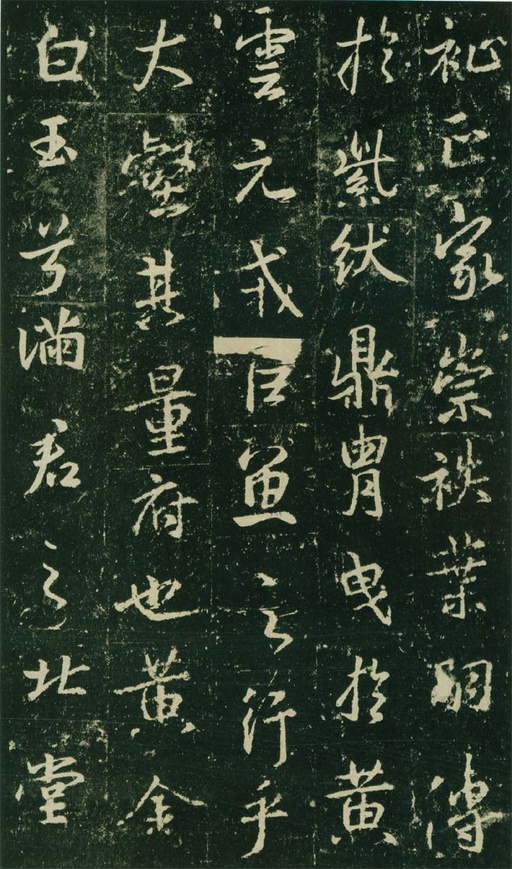 祉正家崇袟葉嗣傳
於紫紱鼎胄曳於黃
雲元戎巨魚之行乎
大壑其量府也黃金
白玉兮滿君之北堂